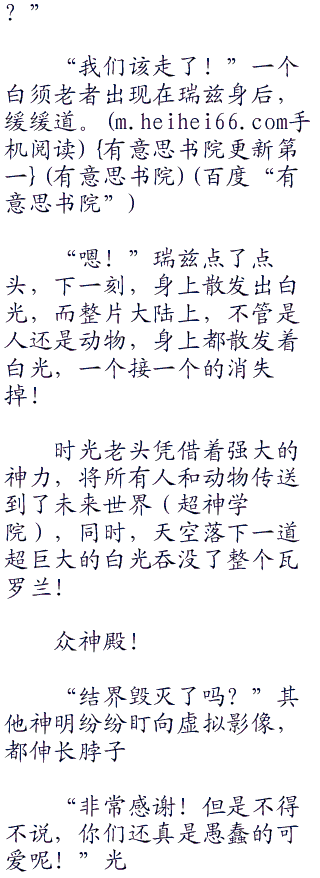 ？”
“我们该走了！”一个
白须老者出现在瑞兹身后，
缓缓道。(m.heihei66.com手
机阅读){有意思书院更新第
一}(有意思书院)(百度“有
意思书院”)
“嗯！”瑞兹点了点
头，下一刻，身上散发出白
光，而整片大陆上，不管是
人还是动物，身上都散发着
白光，一个接一个的消失
掉！
时光老头凭借着强大的
神力，将所有人和动物传送
到了未来世界（超神学
院），同时，天空落下一道
超巨大的白光吞没了整个瓦
罗兰！
众神殿！
“结界毁灭了吗？”其
他神明纷纷盯向虚拟影像，
都伸长脖子
“非常感谢！但是不得
不说，你们还真是愚蠢的可
爱呢！”光